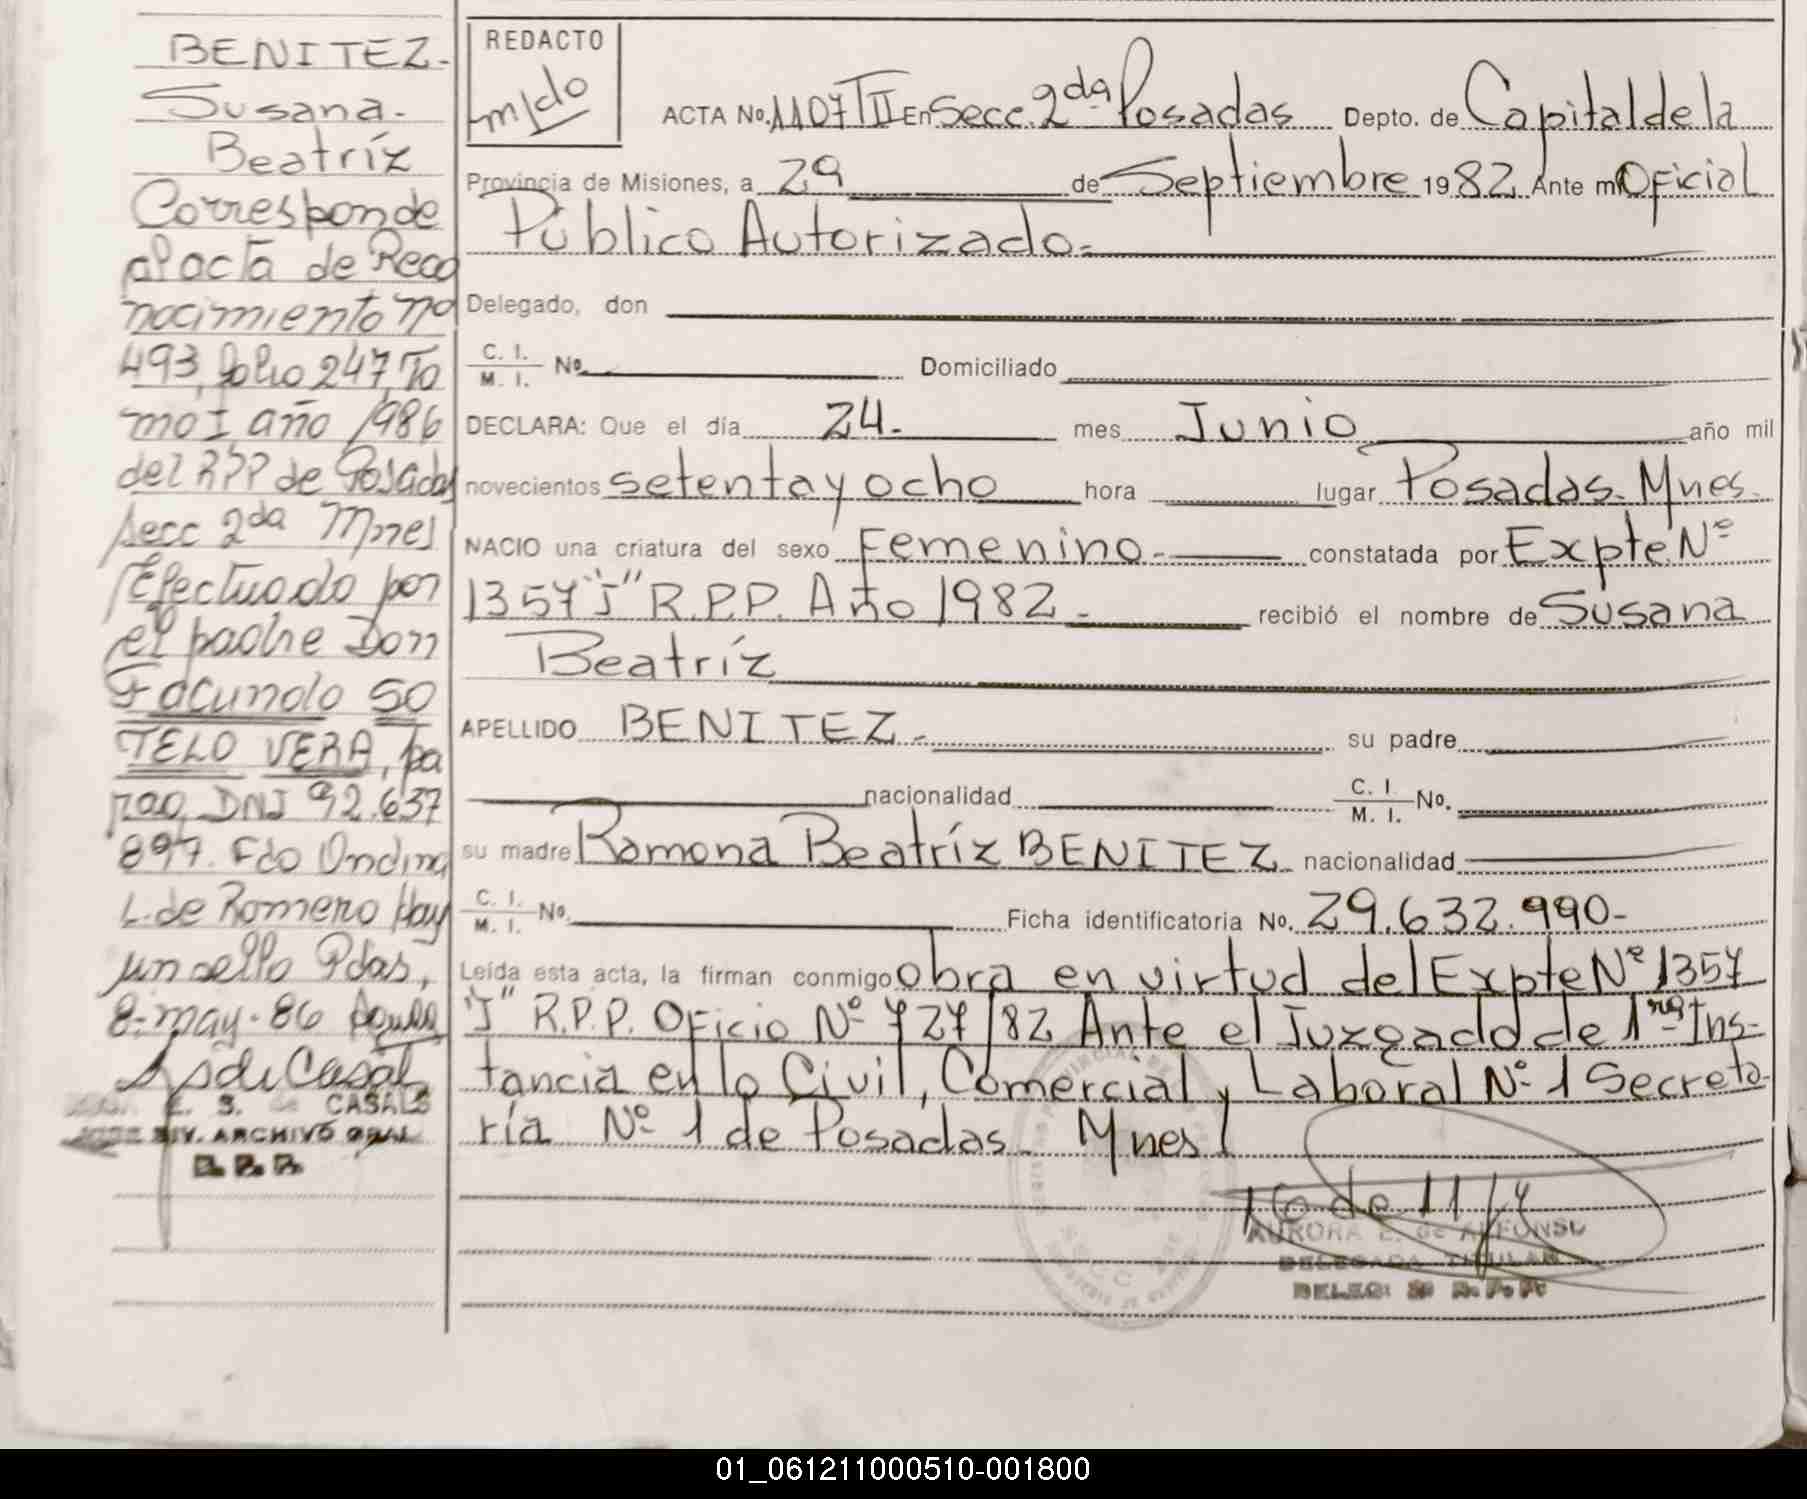 BENITEZ-
Susana-
Beatríz
Corresponde
al acta de Reco
nocimiento nº
493, folio 247, To
mo I, año 1986
del RPP de Posadas
secc 2da Mnes
Efectuado por
el padre Don
Facundo SO
TELO VERA, pa
rag, DNI 92.637
897. Fdo Ondina
L. de Romero Hay
un sello Pdas,
8-may-86
E. S. de CASALS
DIV. ARCHIVO GRAL
R. P. P.
REDACTO
m/do
ACTA No. 1107 TII En Secc. 2da Posadas Depto. de Capital de la
Provincia de Misiones, a 29 de Septiembre 1982 Ante mi Oficial
Público Autorizado.-
Delegado, don
C. I. / M. I. No. Domiciliado
DECLARA: Que el día 24.- mes Junio año mil
novecientos setenta y ocho hora lugar Posadas. Mnes.
NACIO una criatura del sexo Femenino.- constatada por Expte. Nº
1357 "J" R.P.P. Año 1982.- recibió el nombre de Susana
Beatríz
APELLIDO BENITEZ.- su padre
nacionalidad C. I. / M. I. No.
su madre Ramona Beatríz BENITEZ nacionalidad
C. I. / M. I. No. Ficha identificatoria No. 29.632.990-
Leída esta acta, la firman conmigo obra en virtud del Expte Nº 1357
"J" R.P.P. Oficio Nº 727/82 Ante el Juzgado de 1ra Ins-
tancia en lo Civil, Comercial y Laboral Nº 1 Secreta-
ría Nº 1 de Posadas- Mnes
AURORA E. de ALFONSO
DELEGADA TITULAR
DELEG: 2º R. P. P.
01_061211000510-001800